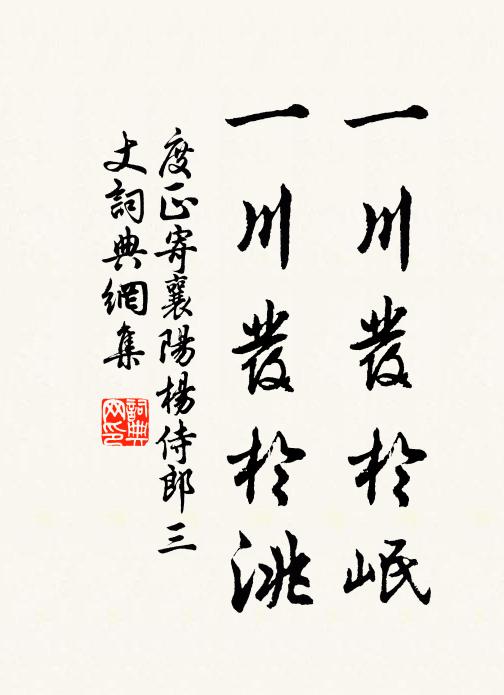 一川發於岷
一川發於洮
度正寄襄陽楊侍郎三
丈詞典網集
詞典網印